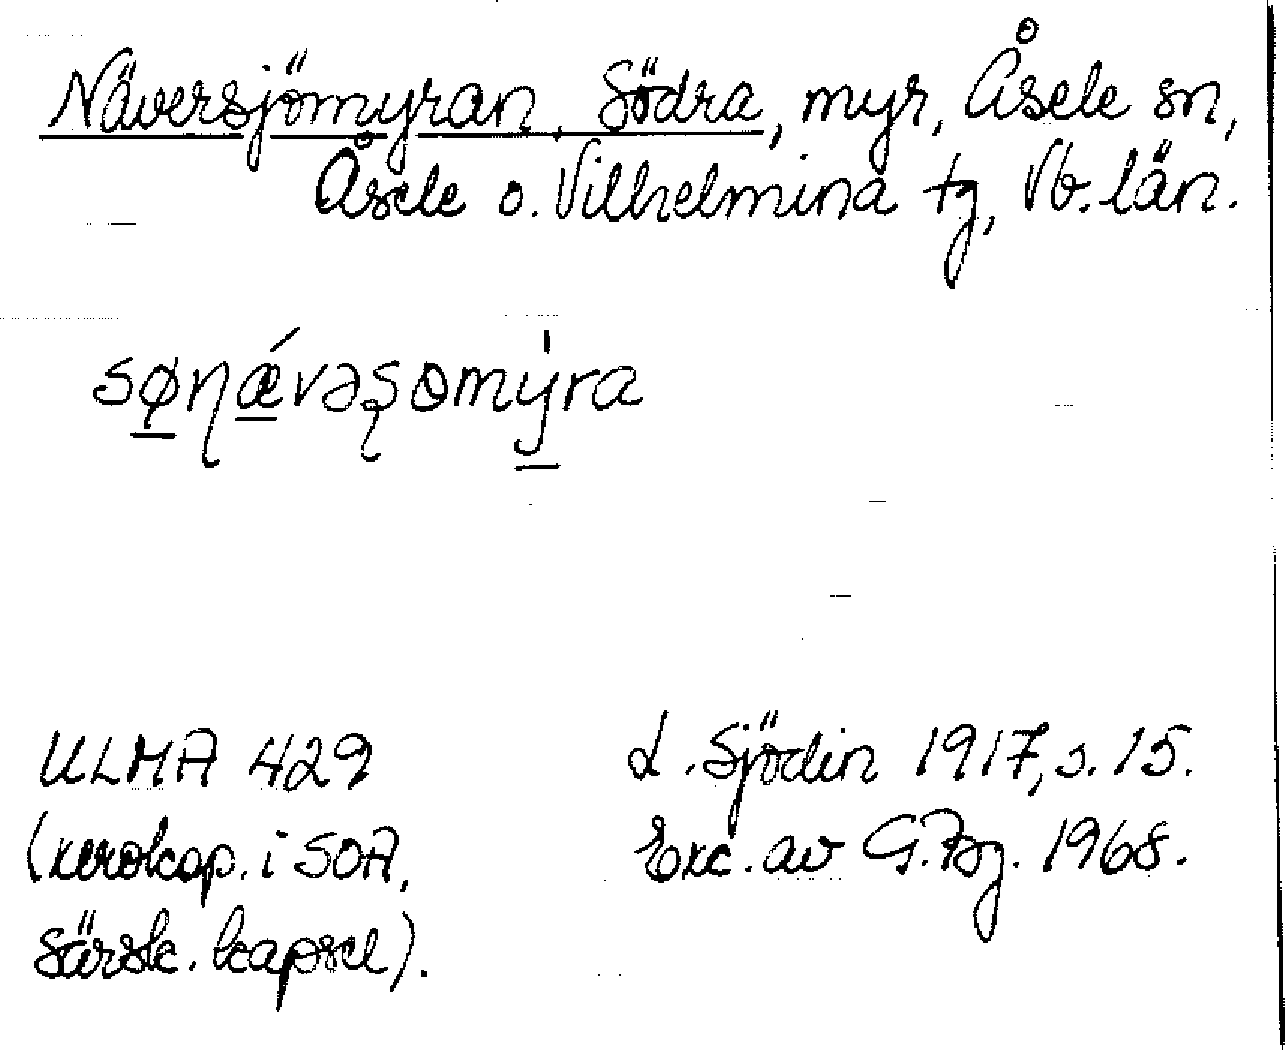 Näversjömyran, Södra, myr, Åsele sn,
Åsele o. Vilhelmina tg, Vb. län.
sø̲ɳǽ̲vəʂɵmý̲ra
ULMA 429
(xerokop. i SOA,
särsk. kapsel).
L. Sjödin 1917, s. 15.
Exc. av G. Bg. 1968.